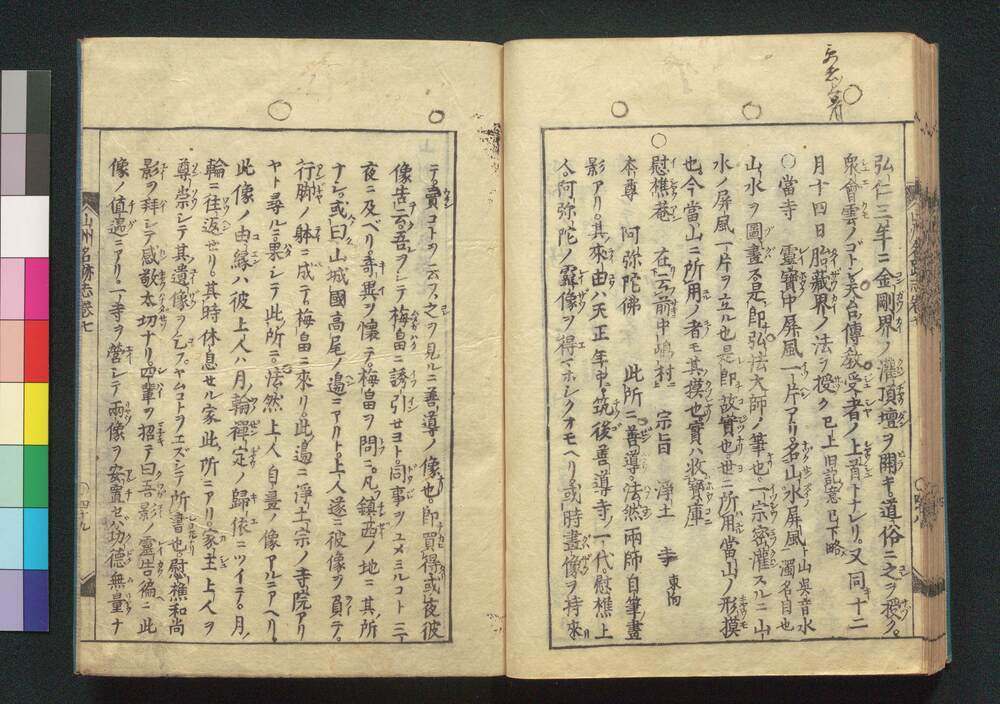 弘仁三年ニ金剛界ノ灌頂壇ヲ開キ道俗ニ之ヲ授ク。
衆會雲ノゴトシ天台傳教受者ノ上首トナレリ。又同十二
月十四日胎藏界ノ法ヲ授ク已上旧記意已下略
○當寺 靈寶中屏風一片アリ。名山水屏風ト山呉音水濁名目也
山水ヲ圖畫ス是即弘法大師ノ筆也。一宗密灌スルニ山
水ノ屏風一片ヲ立ル也是即故實也世ニ所用當山ノ形摸
也今當山ニ所用ノ者モ其摸也實ハ收寶庫ニ
○慈樵菴 在云前中嶋村ニ 宗旨 淨土 寺 東向
本尊 阿弥陀佛 此所ニ善導。法然兩師自筆畫
影アリ。其來由ハ天正年中。筑後善導寺ノ一代。慈樵上
人阿弥陀ノ靈像ヲ得マホシクオモヘリ。或時畫像ヲ持來
テ。賣コトヲ云フ。之ヲ見ルニ善導ノ像也。即買得或夜彼
像告云。吾ヲシテ梅畠ニ誘引セヨト。同事ヲユメミルコト三
夜ニ及ベリ。奇異ヲ懐テ。梅畠ヲ問ニ。凡鎮西ノ地ニ其所
ナシ。或曰山城國高尾ノ邉ニアリト。上人遂ニ彼像ヲ負テ。
行脚ノ躰ニ成テ。梅畠ニ來リ。此邉ニ淨土宗ノ寺院アリ
ヤト尋ルニ果シテ此所ニ。法然上人自畫ノ像アルニアヘリ。
此像ノ由縁ハ彼上人ハ月輪禪定ノ歸依ニツイテ。月ノ
輪ニ往返セリ。其時休息セル家此所ニアリ。家主上人ヲ
尊崇シテ其遺像ヲ乞フ。ヤムコトヲエズシテ所書也。慈樵和尚
影ヲ拜シテ感敬太切ナリ。四輩ヲ招テ曰吾影ノ靈告偏ニ此
像ノ値遇ニアリ。一寺ヲ營シテ兩像ヲ安置セバ功德無量ナ
山州名跡志卷七